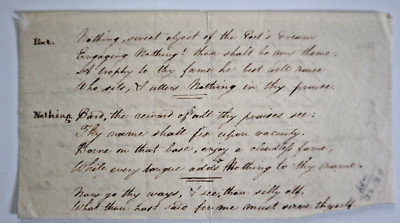 Poet. Nothing, sweet object of the Poet's dream
Engaging Nothing! thou shalt be my theme:
A trophy to thy fame he best will raise
Who sets, & utters Nothing in thy praise.
Nothing. Bard, the reward of all thy praises see:
Thy name shall fix upon vacuity.
Borne on that base, enjoy a fame,
While every tongue adds Nothing to thy name.
Now go thy ways, & see, thou silly elf,
What thou hast said for me must serve thyself